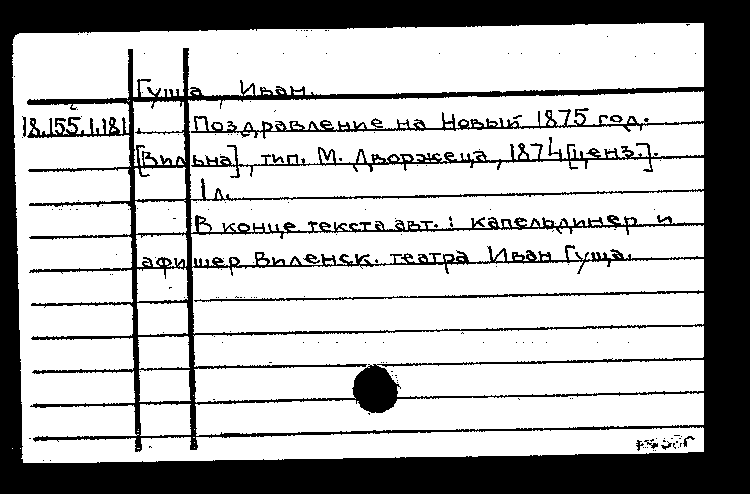 Гуща, Иван.
18.155.1.181. Поздравление на Новый 1875 год.
[Вильна], тип. М. Дворжеца, 1874 [ценз.].
1 л.
В конце текста авт.: капельдинер и
афишер Виленск. театра Иван Гуща.